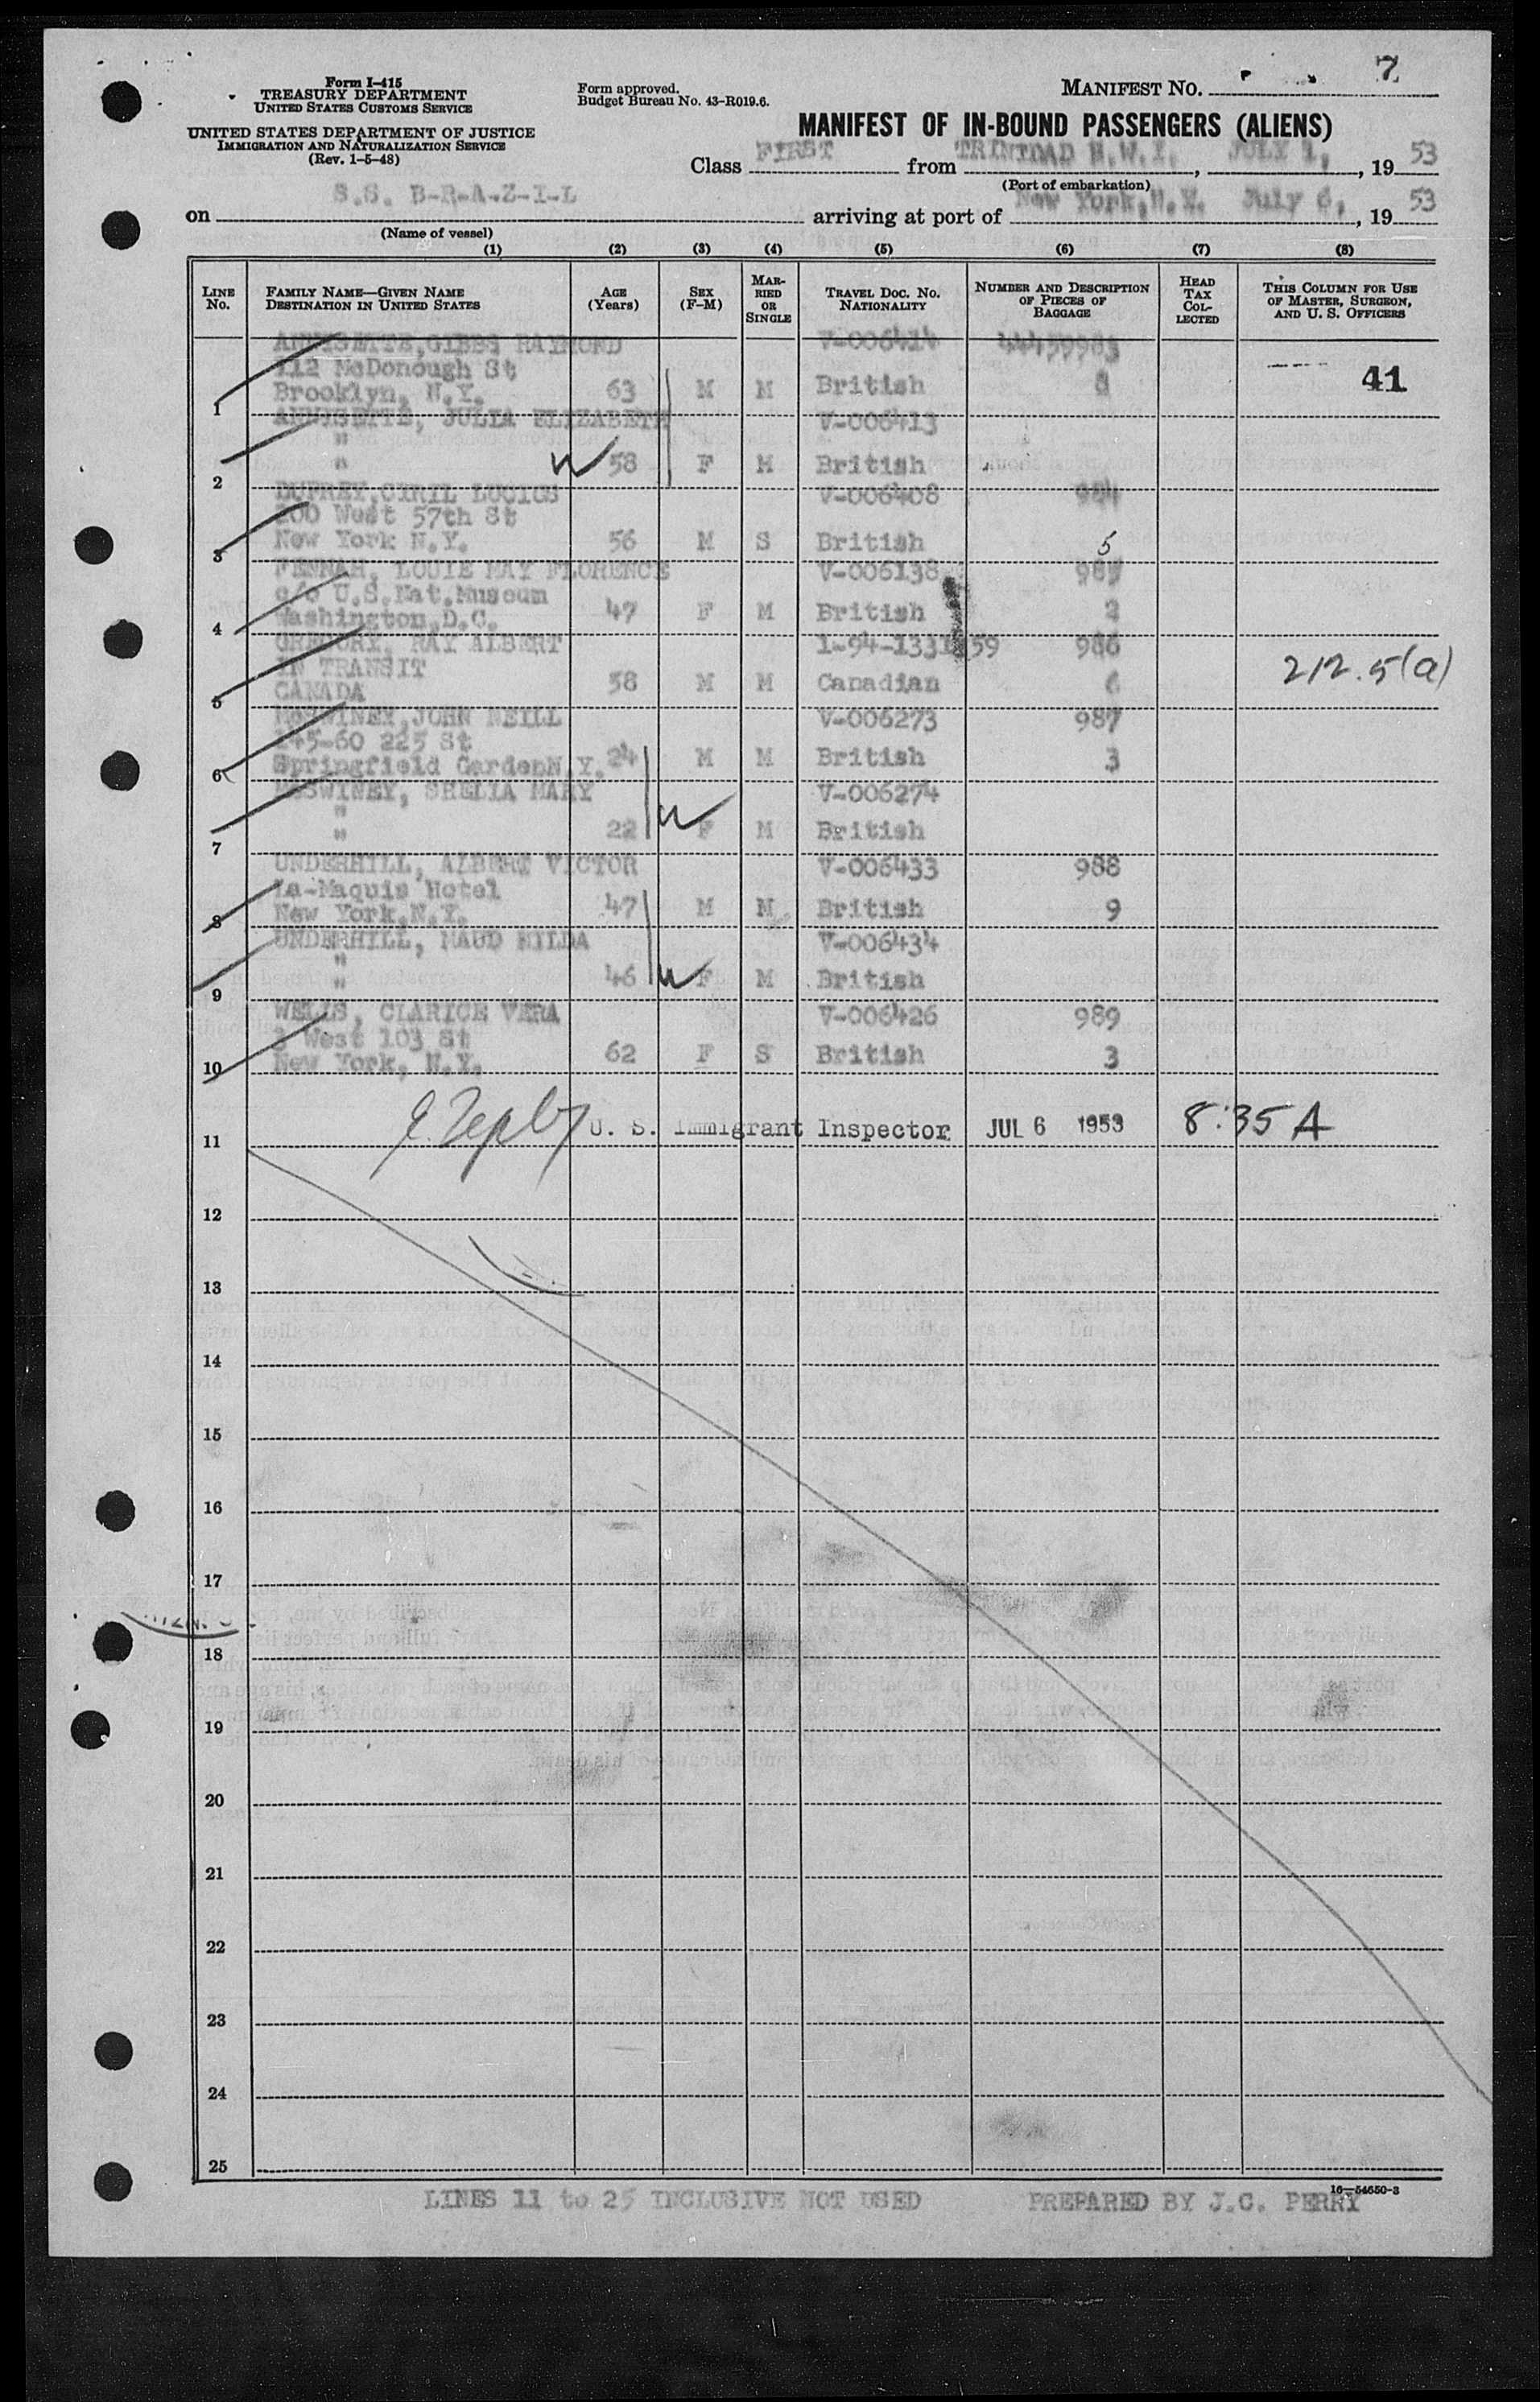 Form I-415
TREASURY DEPARTMENT
UNITED STATES CUSTOMS SERVICE
UNITED STATES DEPARTMENT OF JUSTICE
IMMIGRATION AND NATURALIZATION SERVICE
(Rev. 1-5-48)
Form approved.
Budget Bureau No. 43-R019.6.
MANIFEST NO. 7
MANIFEST OF IN-BOUND PASSENGERS (ALIENS)
Class FIRST from TRINIDAD B.W.I. , JULY 1, , 19 53
(Port of embarkation)
on S.S. B-R-A-Z-I-L arriving at port of New York, N.Y. July 6, , 19 53
(Name of vessel)
(1) (2) (3) (4) (5) (6) (7) (8)
LINE No. FAMILY NAME—GIVEN NAME DESTINATION IN UNITED STATES AGE (Years) SEX (F-M) MARRIED OR SINGLE TRAVEL DOC. NO. NATIONALITY NUMBER AND DESCRIPTION OF PIECES OF BAGGAGE HEAD TAX COLLECTED THIS COLUMN FOR USE OF MASTER, SURGEON, AND U. S. OFFICERS
GIBBS RAYMOND V-006414
112 McDonough St
1 Brooklyn, N.Y. 63 M M British 41
JULIA ELIZABETH V-006413
"
2 " 58 F M British
DUPREY, CYRIL LUCIUS V-006408 984
200 West 57th St
3 New York N.Y. 56 M S British 5
FENNAH, LOUIE MAY FLORENCE V-006138 985
c/o U.S.Nat.Museum
4 Washington, D.C. 47 F M British 2
GREGORY, RAY ALBERT 986
IN TRANSIT
5 CANADA 58 M M Canadian 6 212.5(a)
McSWINEY, JOHN NEILL V-006273 987
145-60 225 St
6 Springfield Garden N.Y. 24 M M British 3
McSWINEY, SHELIA MARY V-006274
"
7 " 22 F M British
UNDERHILL, ALBERT VICTOR V-006433 988
La-Maquis Hotel
8 New York, N.Y. 47 M M British 9
UNDERHILL, MAUD HILDA V-006434
"
9 " 46 F M British
WELLS, CLARICE VERA V-006426 989
3 West 103 St
10 New York, N.Y. 62 F S British 3
11 U. S. Immigrant Inspector JUL 6 1953 8:35 A
12
13
14
15
16
17
18
19
20
21
22
23
24
25
LINES 11 to 25 INCLUSIVE NOT USED PREPARED BY J.C. PERRY
16—54650-3